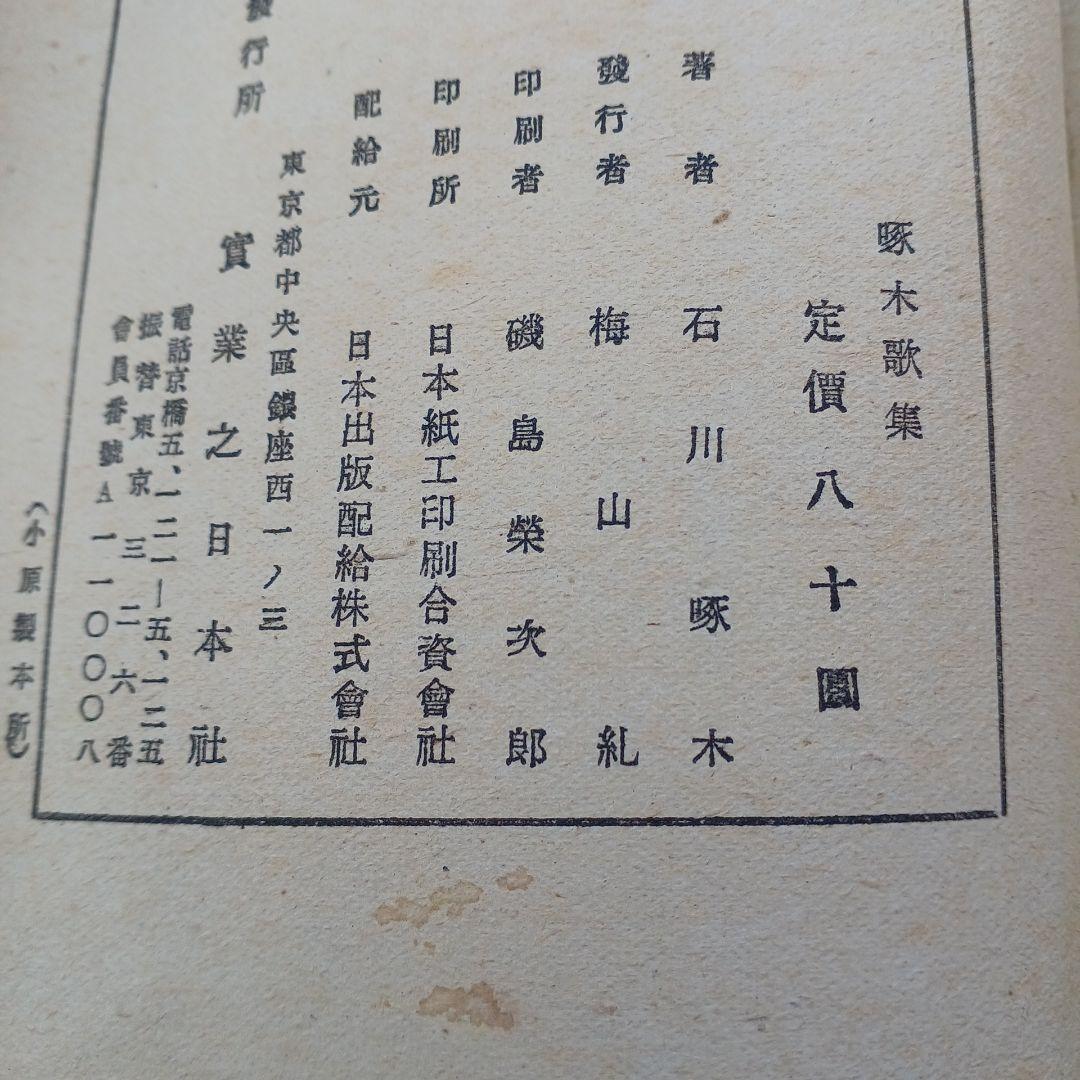 啄木歌集
定價八十圓
著者 石川啄木
發行者 梅山糺
印刷者 磯島榮次郎
印刷所 日本紙工印刷合資會社
配給元 日本出版配給株式會社
東京都中央區銀座西一ノ三
發行所 實業之日本社
電話京橋五、一二一—五、一二五
振替東京三二六番
會員番號A一一〇〇〇八
(小原製本所)